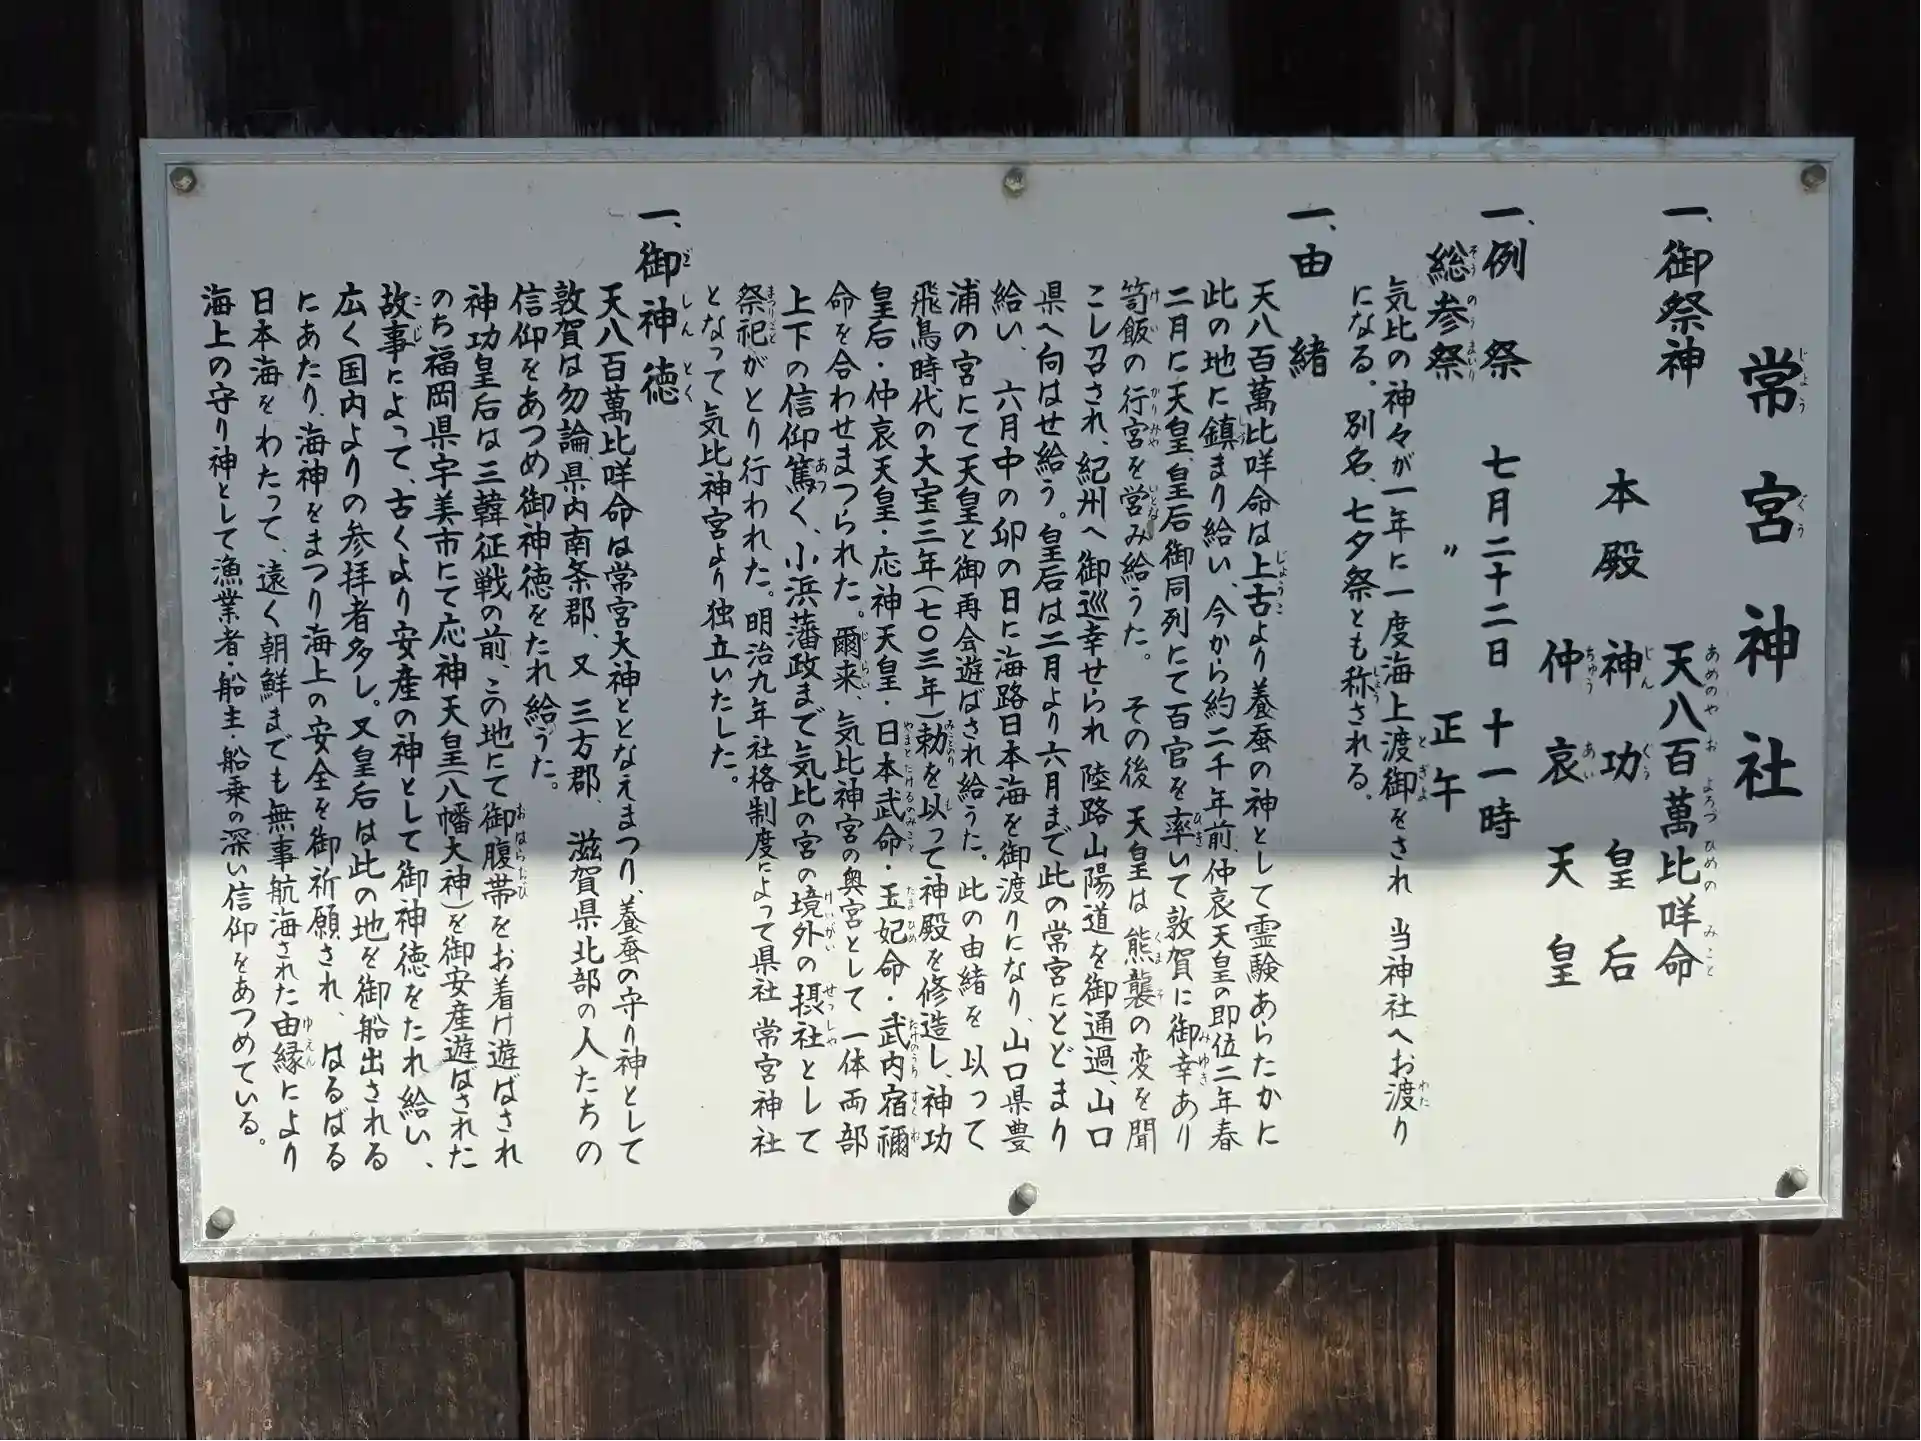 常宮神社
一、御祭神
天八百萬比咩命
本殿 神功皇后
仲哀天皇
一、例祭 七月二十二日 十一時
総参祭 〃 正午
気比の神々が一年に一度海上渡御をされ 当神社へお渡り
になる。別名、七夕祭とも称される。
一、由緒
天八百萬比咩命は上古より養蚕の神として霊験あらたかに
此の地に鎮まり給い、今から約二千年前、仲哀天皇の即位二年春
二月に天皇、皇后御同列にて百官を率いて敦賀に御幸あり
笥飯の行宮を営み給うた。 その後 天皇は熊襲の変を聞
こし召され、紀州へ御巡幸せられ 陸路山陽道を御通過、山口
県へ向はせ給う。皇后は二月より六月まで此の常宮にとどまり
給い、六月中の卯の日に海路日本海を御渡りになり、山口県豊
浦の宮にて天皇と御再会遊ばされ給うた。此の由緒を以って
飛鳥時代の大宝三年(七〇三年)勅を以って神殿を修造し、神功
皇后・仲哀天皇・応神天皇・日本武命・玉妃命・武内宿禰
命を合わせまつられた。爾来、気比神宮の奥宮として一体両部
上下の信仰篤く、小浜藩政まで気比の宮の境外の摂社として
祭祀がとり行われた。明治九年社格制度によって県社 常宮神社
となって気比神宮より独立いたした。
一、御神徳
天八百萬比咩命は常宮大神ととなえまつり、養蚕の守り神として
敦賀は勿論、県内南条郡、又 三方郡、滋賀県北部の人たちの
信仰をあつめ御神徳をたれ給うた。
神功皇后は三韓征戦の前、この地にて御腹帯をお着け遊ばされ
のち福岡県宇美市にて応神天皇(八幡大神)を御安産遊ばされた
故事によって、古くより安産の神として御神徳をたれ給い、
広く国内よりの参拝者多し。又皇后は此の地を御船出される
にあたり、海神をまつり海上の安全を御祈願され、はるばる
日本海をわたって、遠く朝鮮までも無事航海された由縁により
海上の守り神として漁業者・船主・船乗の深い信仰をあつめている。